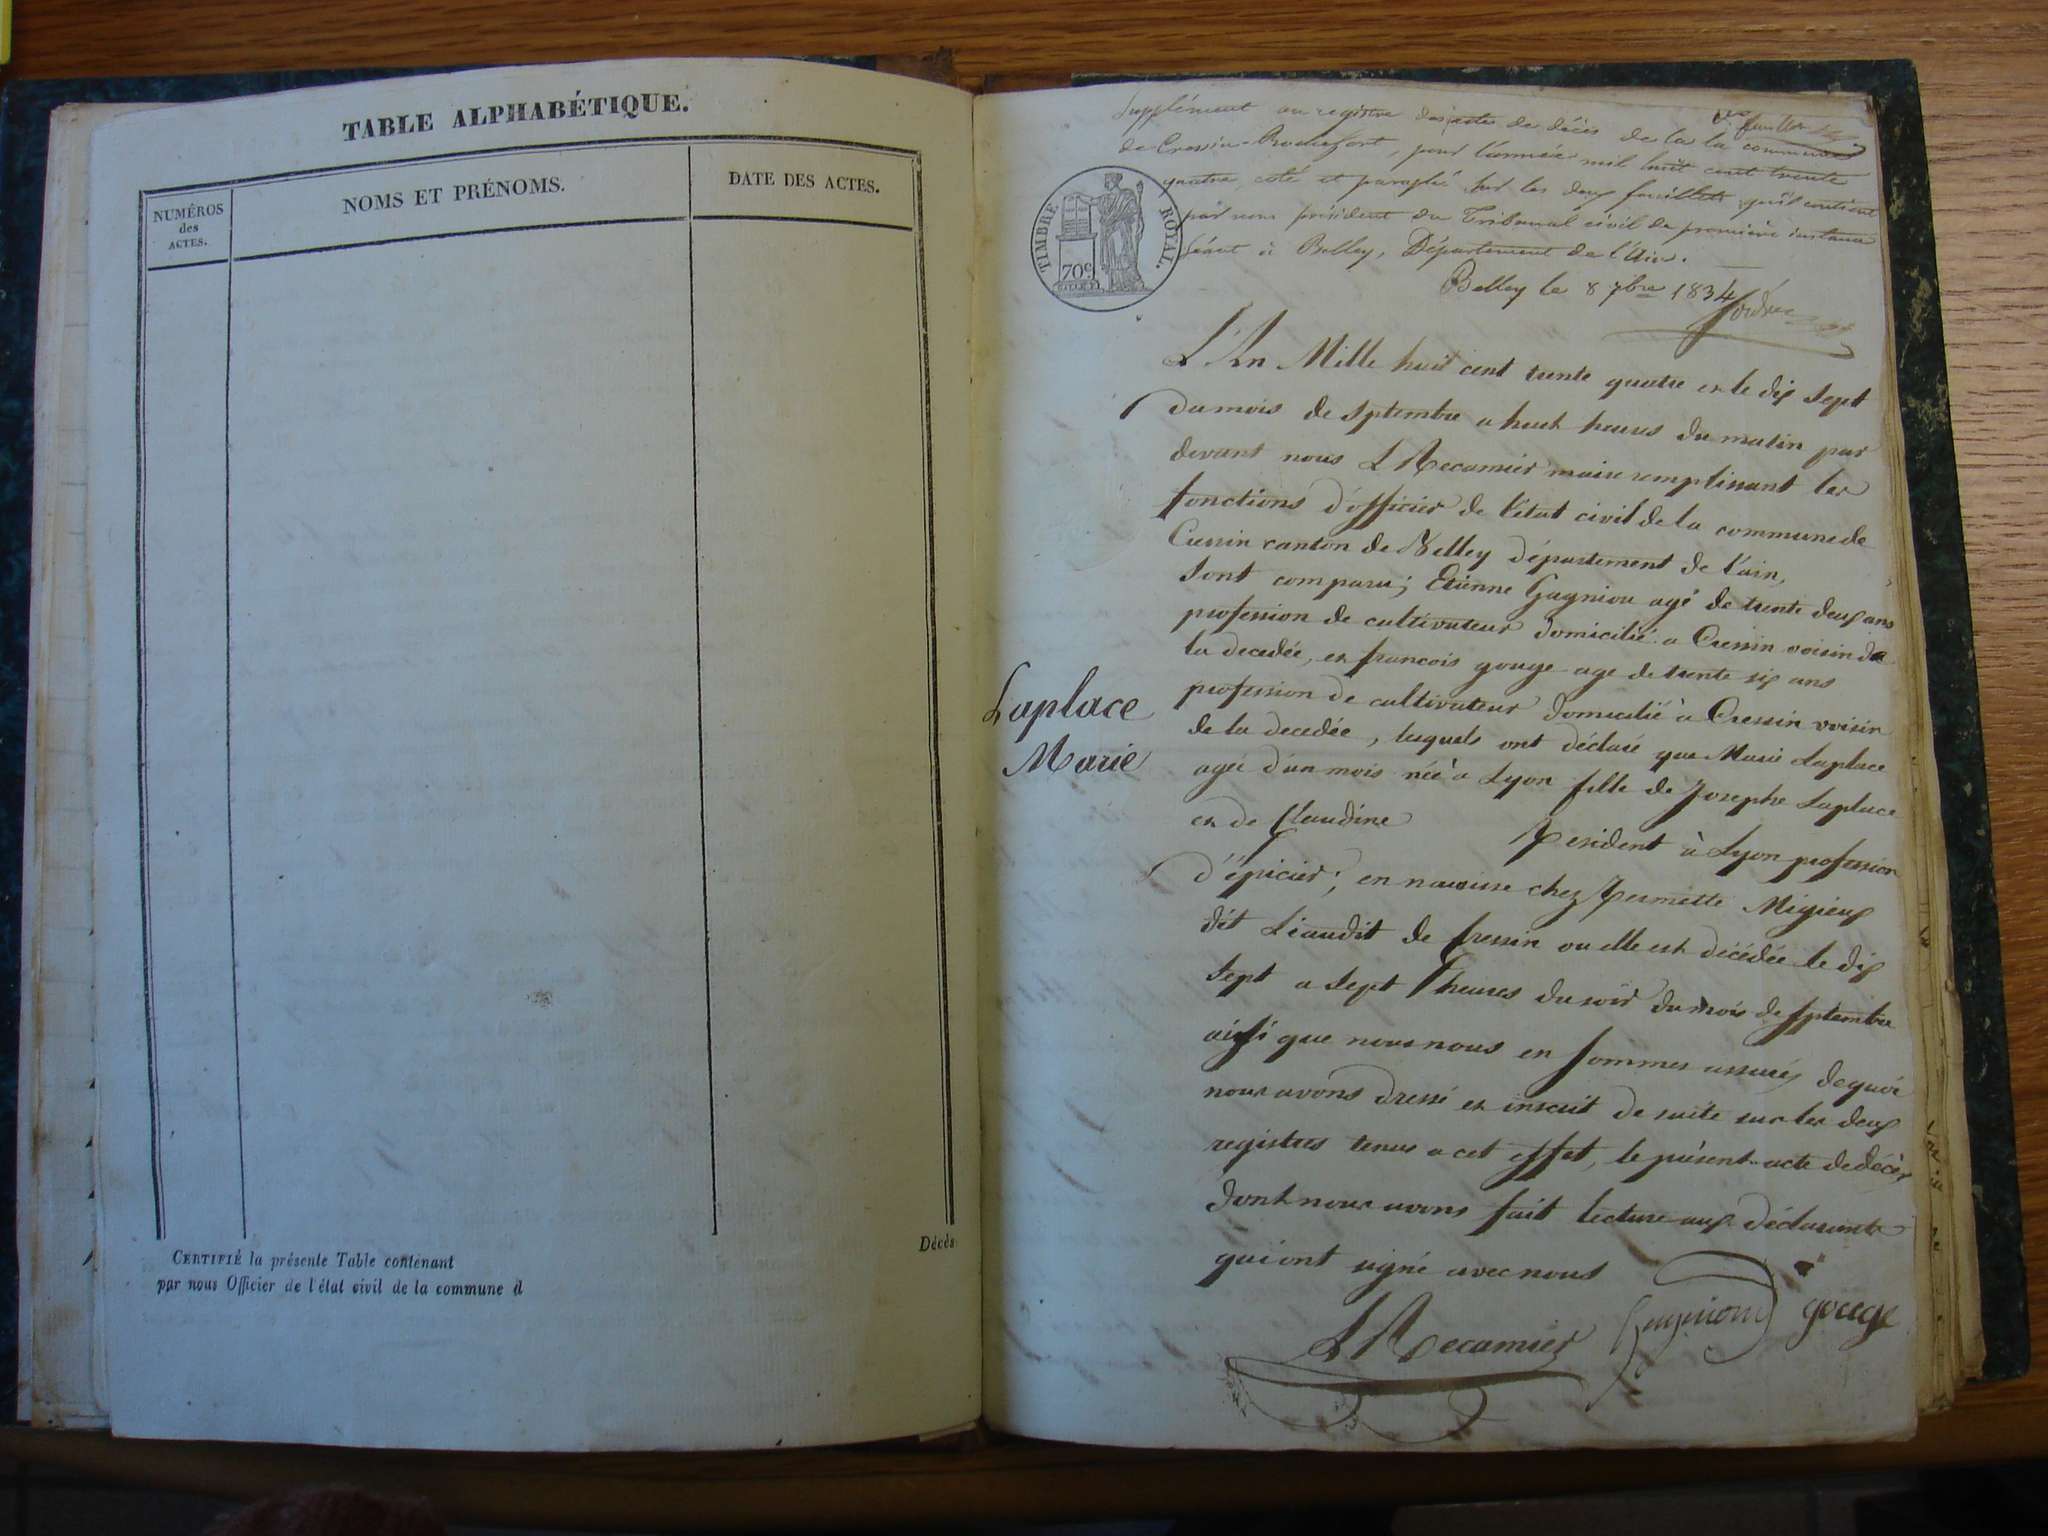 TABLE ALPHABÉTIQUE.
NUMÉROS
des
ACTES.
NOMS ET PRÉNOMS.
DATE DES ACTES.
CERTIFIÉ la présente Table contenant
par nous Officier de l'état civil de la commune d
Décès
1er feuillet
Supplément au registre des actes de décès de la la commune
de Cressin-Rochefort, pour l'année mil huit cent trente
quatre, coté et paraphé sur les deux feuillets qu'il contient
par nous président du Tribunal civil de première instance
séant à Belley, Département de l'Ain.
Belley le 8 7bre 1834
TIMBRE ROYAL.
70c
L'An Mille huit cent trente quatre et le dix sept
du mois de septembre a huit heures du matin par
devant nous L Recamier maire remplissant les
fonctions d'officier de l'état civil de la commune de
Cressin canton de Belley département de l'ain,
sont comparu; Etienne Gagniou agé de trente deux ans
profession de cultivateur domicilié a Cressin voisin de
la decedée, et francois gouge age de trente six ans
profession de cultivateur domicilié à Cressin voisin
de la decedée, lesquels ont déclaré que Marie Laplace
Laplace
Marie
agée d'un mois née à Lyon fille de Josephe Laplace
et de Claudine Resident à Lyon profession
d'épicier; en nourisse chez Pernette Migieux
dit Liaudit de Cressin ou elle est décédée le dix
sept a sept heures du soir du mois de septembre
ainsi que nous nous en sommes assurés de quoi
nous avons dressé et inscrit de suite sur les deux
registres tenus a cet effet, le présent acte de décès
dont nous avons fait lecture aux déclarants
qui ont signé avec nous
L Recamier Gagniou gouge